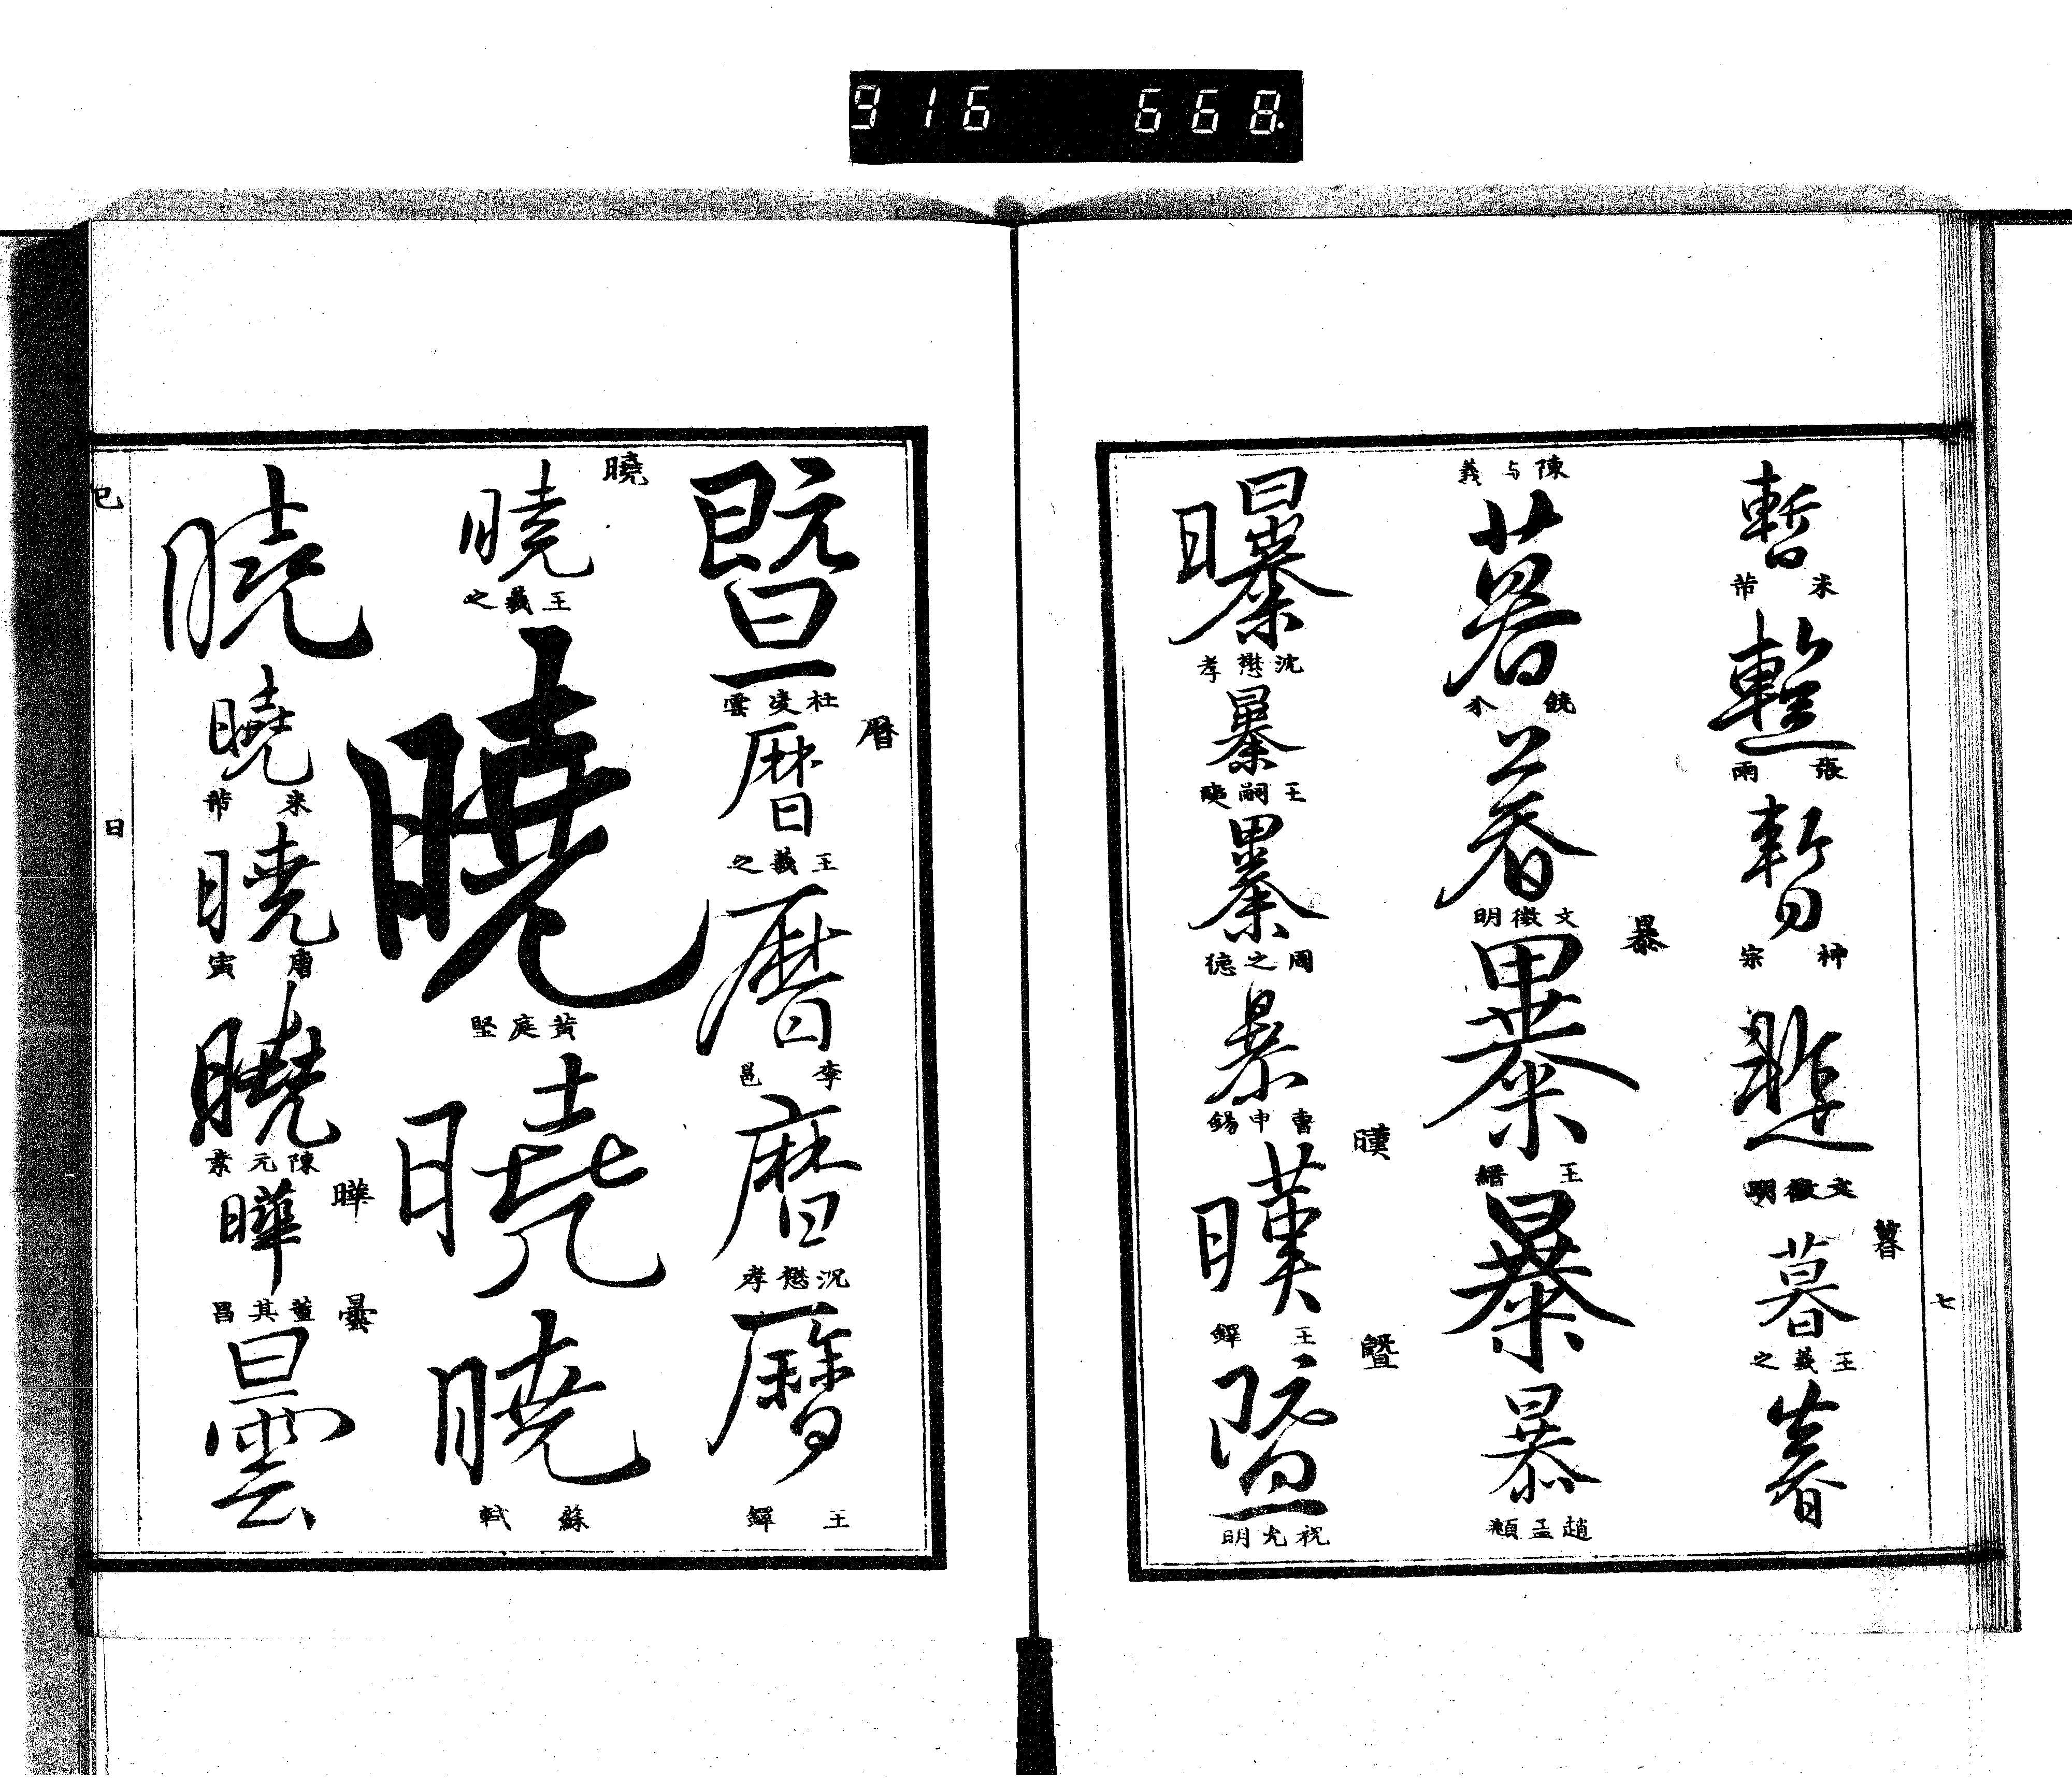 916 668.
暫
米芾
暫
張雨
暫
神宗
暫
文徵明
暮
暮
王羲之
暮
陳与義
暮
饒介
暮
文徵明
暴
暴
王縉
暴
暴
趙孟頫
曝
沈懋孝
暴
暴
周之德
暴
曹申錫
暵
暵
王鐸
曁
曁
祝允明
七
曁
杜凌雲
曆
曆
王羲之
曆
李邕
曆
沈懋孝
曆
王鐸
曉
曉
王羲之
曉
黃庭堅
曉
曉
蘇軾
曉
曉
米芾
曉
唐寅
曉
陳元素
曄
曄
董其昌
曇
曇
巳
日